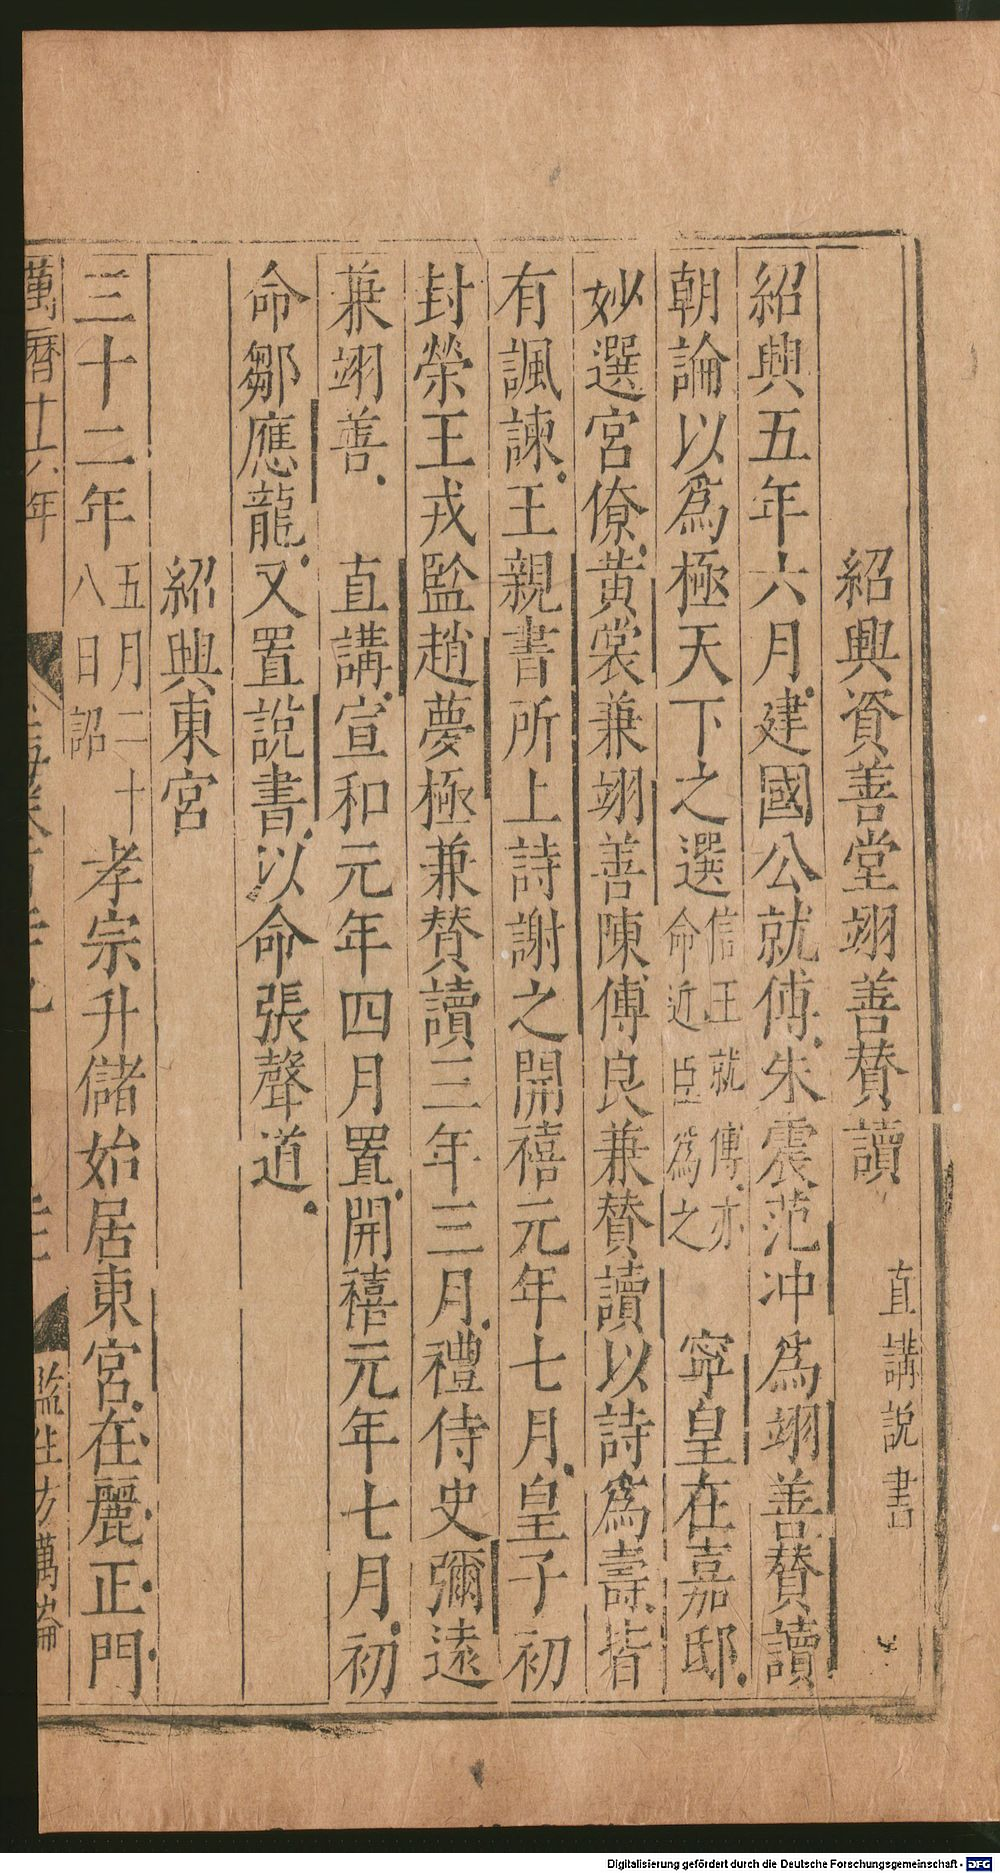 紹興資善堂翊善賛讀 直講説書
紹興五年六月建國公就傅朱震范冲爲翊善賛讀
朝論以爲極天下之選信王就傅亦命近臣爲之 寧皇在嘉邸
妙選宮僚黄裳兼翊善陳傅良兼賛讀以詩爲壽皆
有諷諫王親書所上詩謝之開禧元年七月皇子初
封榮王戎監趙夢極兼賛讀三年三月禮侍史彌遠
兼翊善 直講宣和元年四月置開禧元年七月初
命鄒應龍又置説書以命張聲道
紹興東宮
三十二年五月二十八日詔孝宗升儲始居東宮在麗正門
萬曆十六年
監生方萬
Digitalisierung gefördert durch die Deutsche Forschungsgemeinschaft - DFG